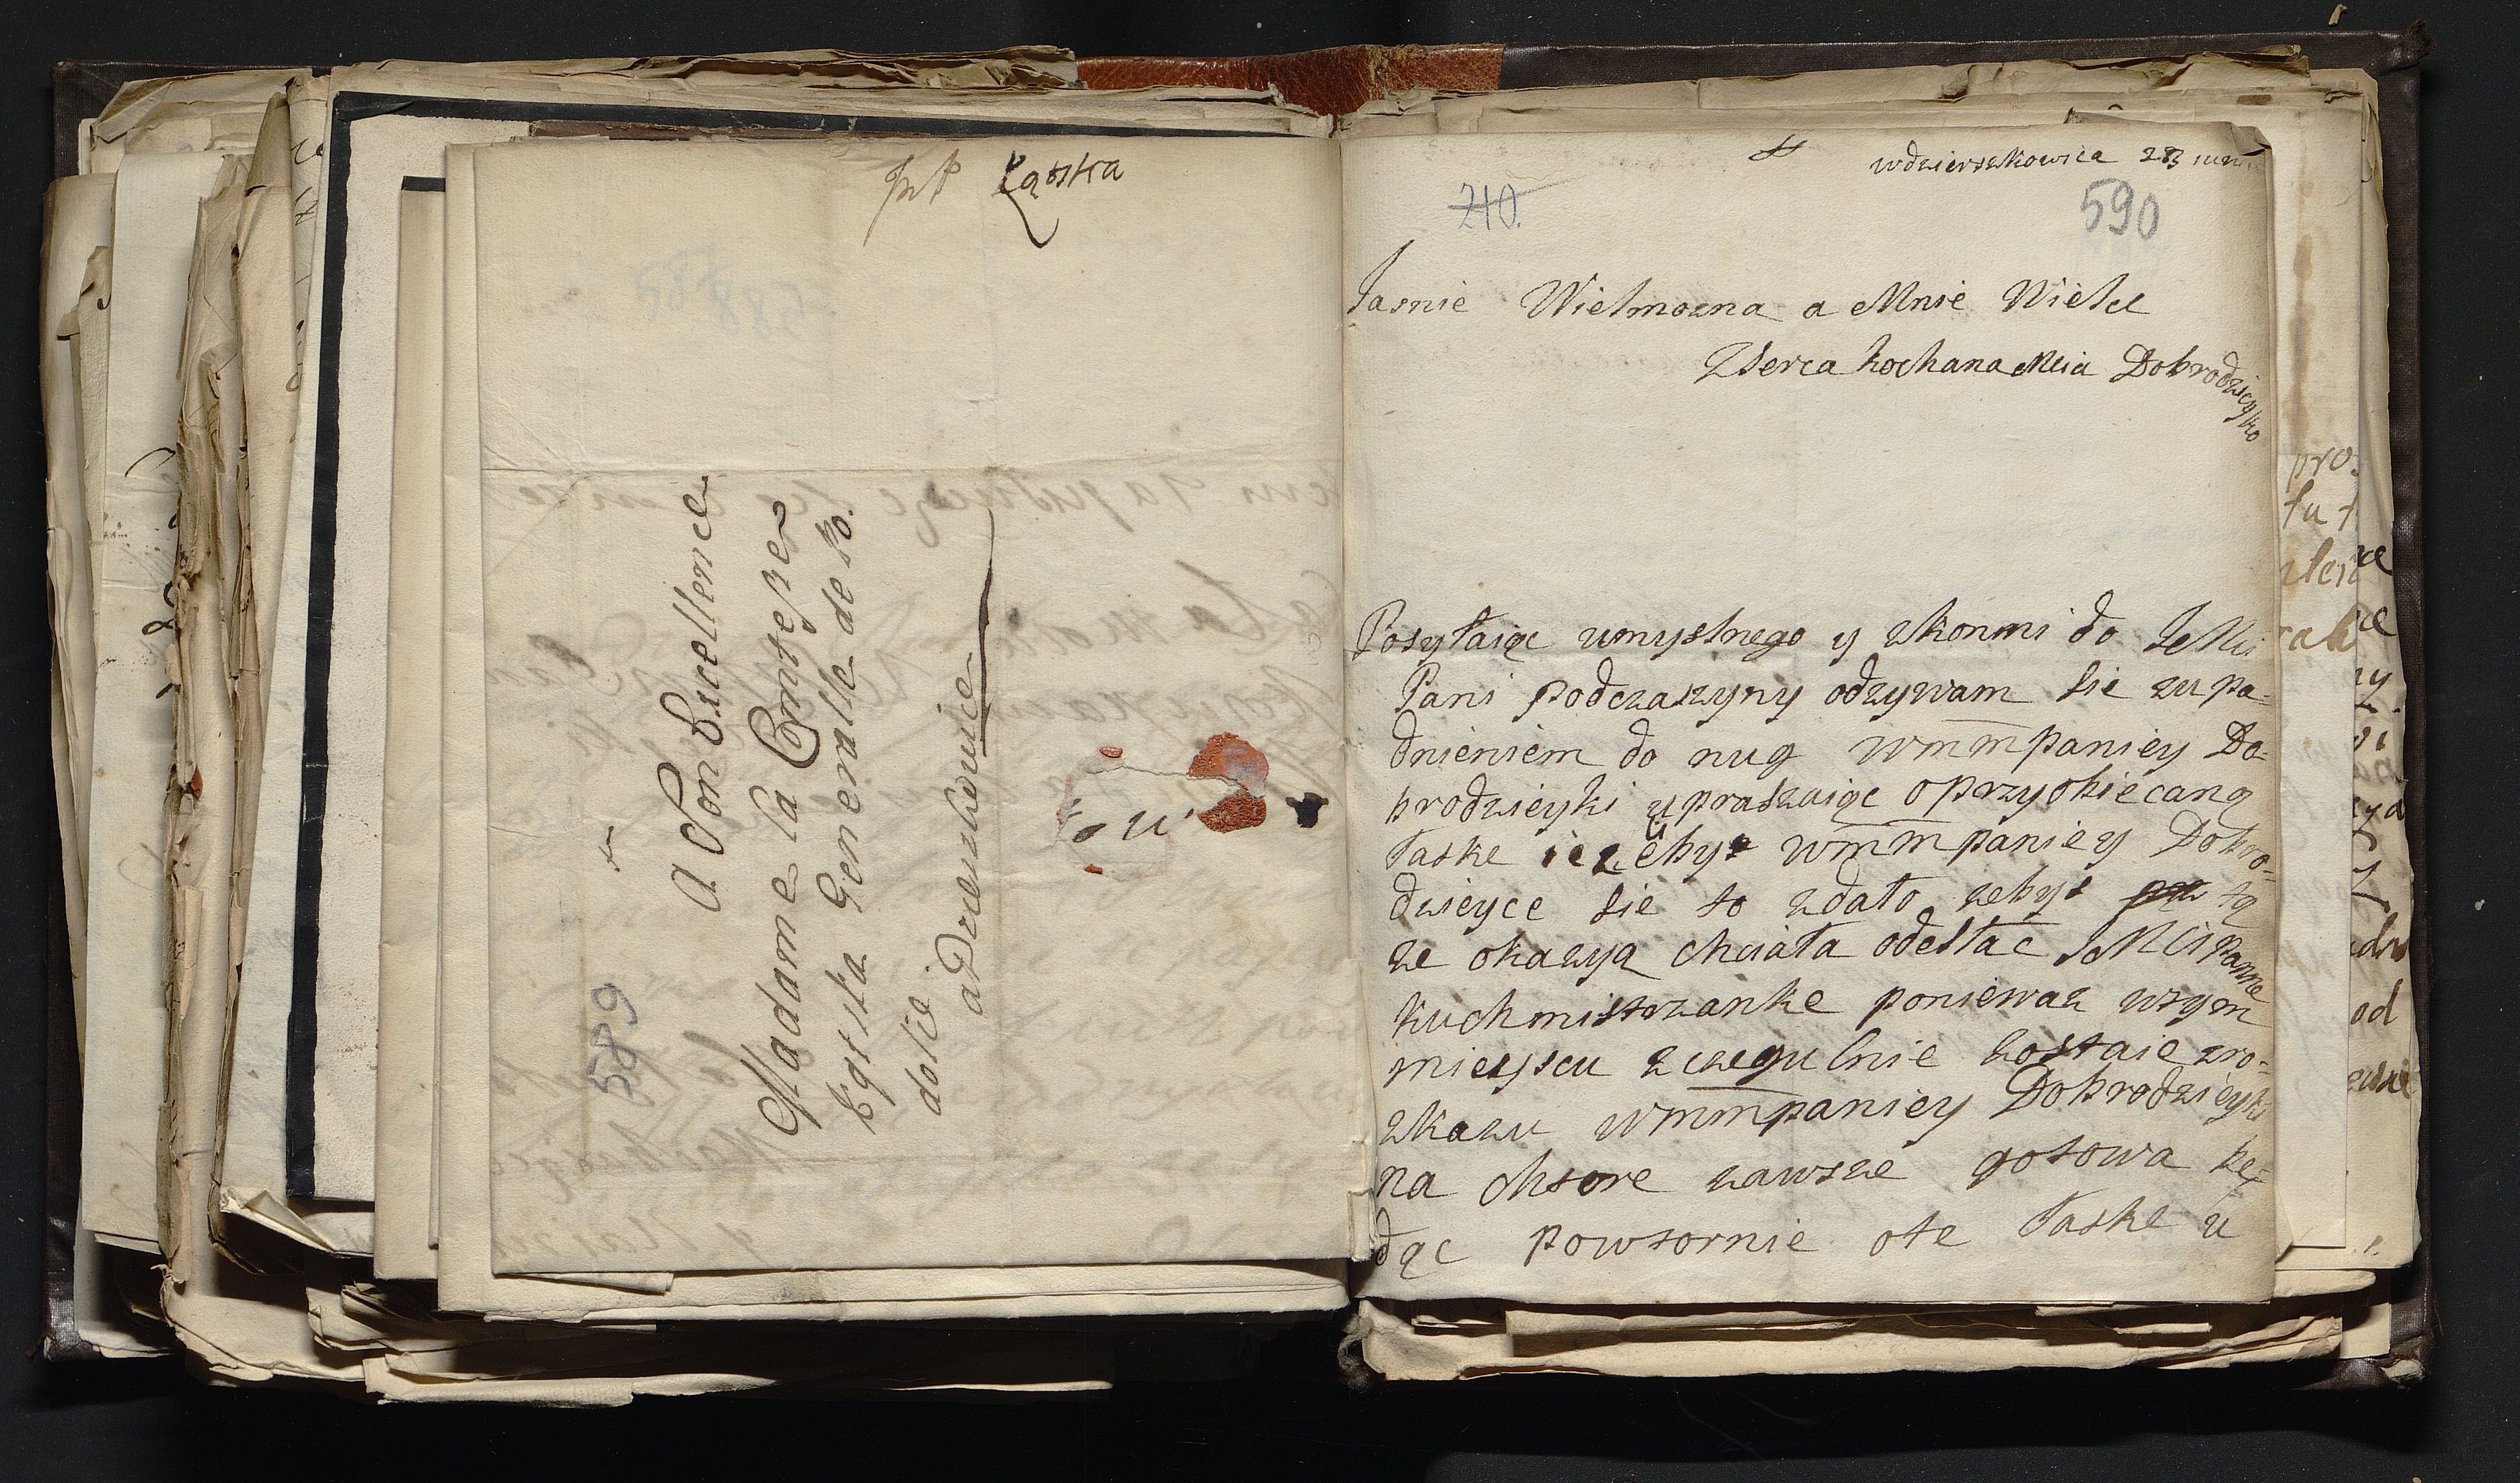 Łąską
589
A Son Excellence
Madame la Comtesse
Łąska Generalle de Po
dolie
a Dzierzkowice
wdzierszkowica 28
210.
590
Jasnie Wielmozna a Mnie Wiele
Zserca kochana Mcia Dobrodzieyko
Posyłaiąc umyslnego y zkonmi do JeMci
Pani podczaszyny odzywam sie zupa-
dnieniem do nug wmmpaniey Do-
brodzieyki upraszaiąc oprzyobiecaną
łaske iezeby wmmpaniey Dobro-
dzieyce sie to zdało zebys tą
ze okazyą chciała odesłac JeMCi Panne
kuchmistrzanke poniewaz wtym
mieyscu zczegulnie zostaie zro-
zkazu wmmpaniey Dobrodzieyki
na chtore zawsze gotowa bę-
dąc powtornie ote łaske u